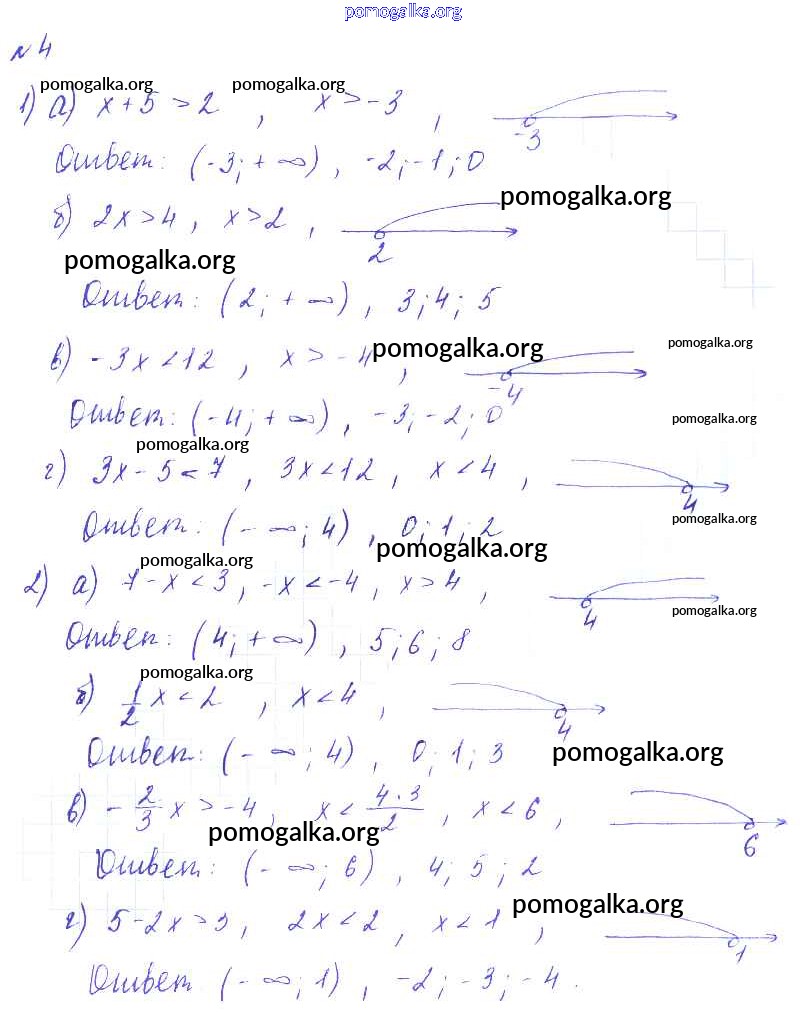 pomogalka.org
№ 4
pomogalka.org pomogalka.org
1) а) x + 5 > 2 , x > -3 ,
-3
Ответ: (-3; + ∞) , -2; -1; 0
pomogalka.org
б) 2x > 4 , x > 2 ,
2
pomogalka.org
Ответ: (2; + ∞) , 3; 4; 5
в) -3x < 12 , x > -4 , pomogalka.org pomogalka.org
-4
Ответ: (-4; + ∞) , -3; -2; 0 pomogalka.org
pomogalka.org
г) 3x - 5 < 7 , 3x < 12 , x < 4 ,
4
Ответ: (- ∞; 4) , 0; 1; 2 pomogalka.org
pomogalka.org pomogalka.org
2) а) 7 - x < 3 , -x < -4 , x > 4 ,
4 pomogalka.org
Ответ: (4; + ∞) , 5; 6; 8
pomogalka.org
б) 1/2 x < 2 , x < 4 ,
4
Ответ: (- ∞; 4) , 0; 1; 3 pomogalka.org
в) - 2/3 x > -4 , x < 4·3/2 , x < 6 ,
6
pomogalka.org
Ответ: (- ∞; 6) , 4; 5; 2
pomogalka.org
г) 5 - 2x > 3 , 2x < 2 , x < 1 ,
1
Ответ: (- ∞; 1) , -2; -3; -4.